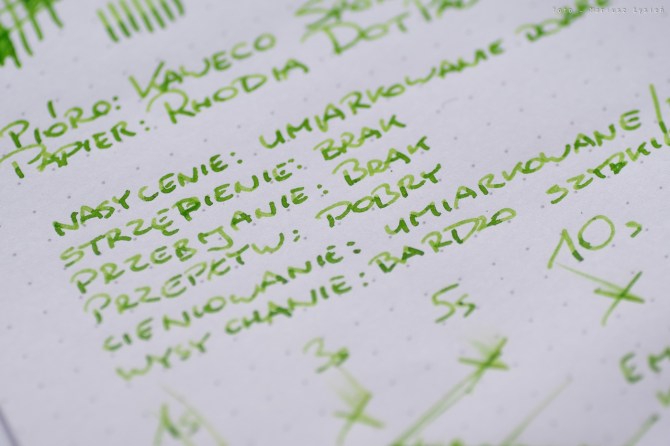 PIÓRO: KAWECO
PAPIER: RHODIA DOTPAD
NASYCENIE: UMIARKOWANE
STRZĘPIENIE: BRAK
PRZEBIJANIE: BRAK
PRZEPŁYW: DOBRY
CIENIOWANIE: UMIARKOWANE
WYSYCHANIE: BARDZO SZYBKIE
1s 3s 5s 10s